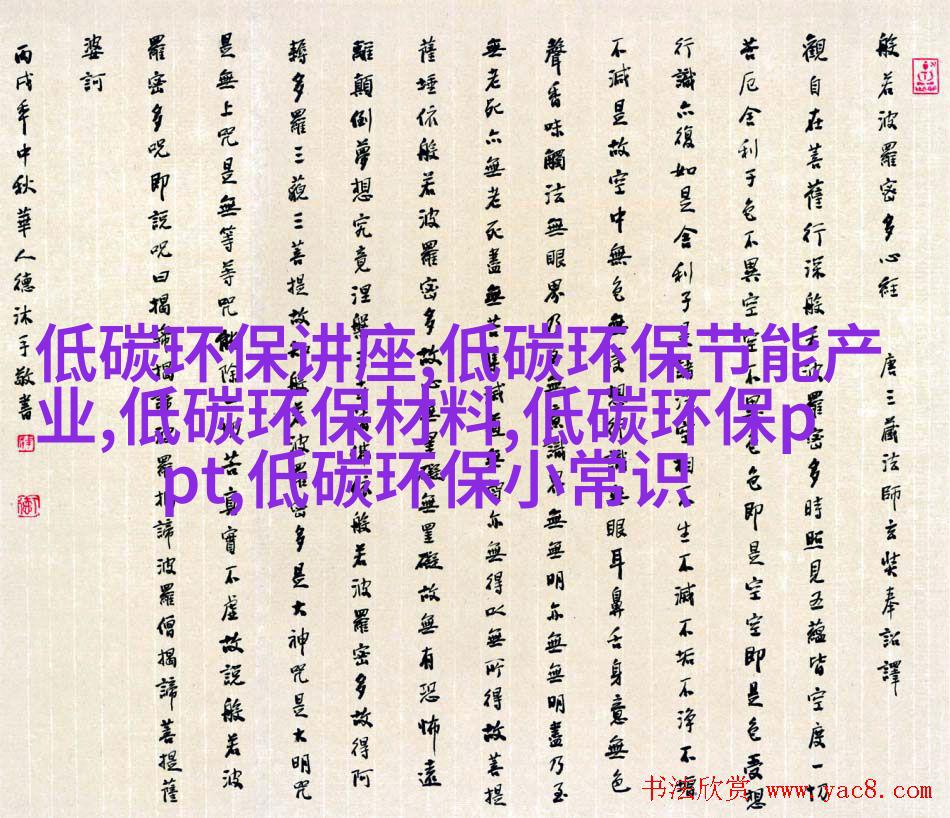 般若波羅密多心經 唐三藏法師玄奘奉詔譯
觀自在菩薩行深般若波羅密多時照見五蘊皆空度一切
苦厄舍利子色不異空空不異色色即是空空即是色受想
行識亦復如是舍利子是諸法空相不生不滅不垢不淨不增
不減是故空中無色無受想行識無眼耳鼻舌身意無色
聲香味觸法無眼界乃至無意識界無無明亦無無明盡乃至
無老死亦無老死盡無苦集滅道無智亦無得以無所得故菩提
薩埵依般若波羅密多故心無罣礙無罣礙故無有恐怖遠
離顛倒夢想究竟涅槃三世諸佛依般若波羅密多故得阿
耨多羅三藐三菩提故知般若波羅密多是大神咒是大明咒
是無上咒是無等等咒能除一切苦真實不虛故說般若波
羅密多咒即說咒曰揭諦揭諦波羅揭諦波羅僧揭諦菩提薩
婆訶
丙戌年中秋華人德沐手敬書
低碳环保讲座,低碳环保节能产
业,低碳环保材料,低碳环保p
pt,低碳环保小常识
书法欣赏 www.yac8.com